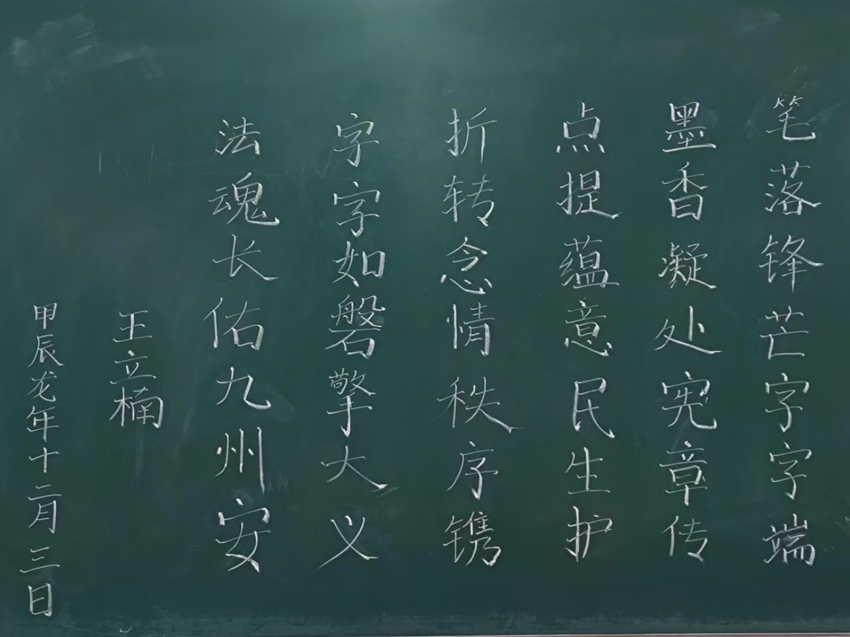 笔落锋芒字字端
墨香凝处宪章传
点提蕴意民生护
折转念情秩序镌
字字如磐擎大义
法魂长佑九州安
王立楠
甲辰龙年十二月三日